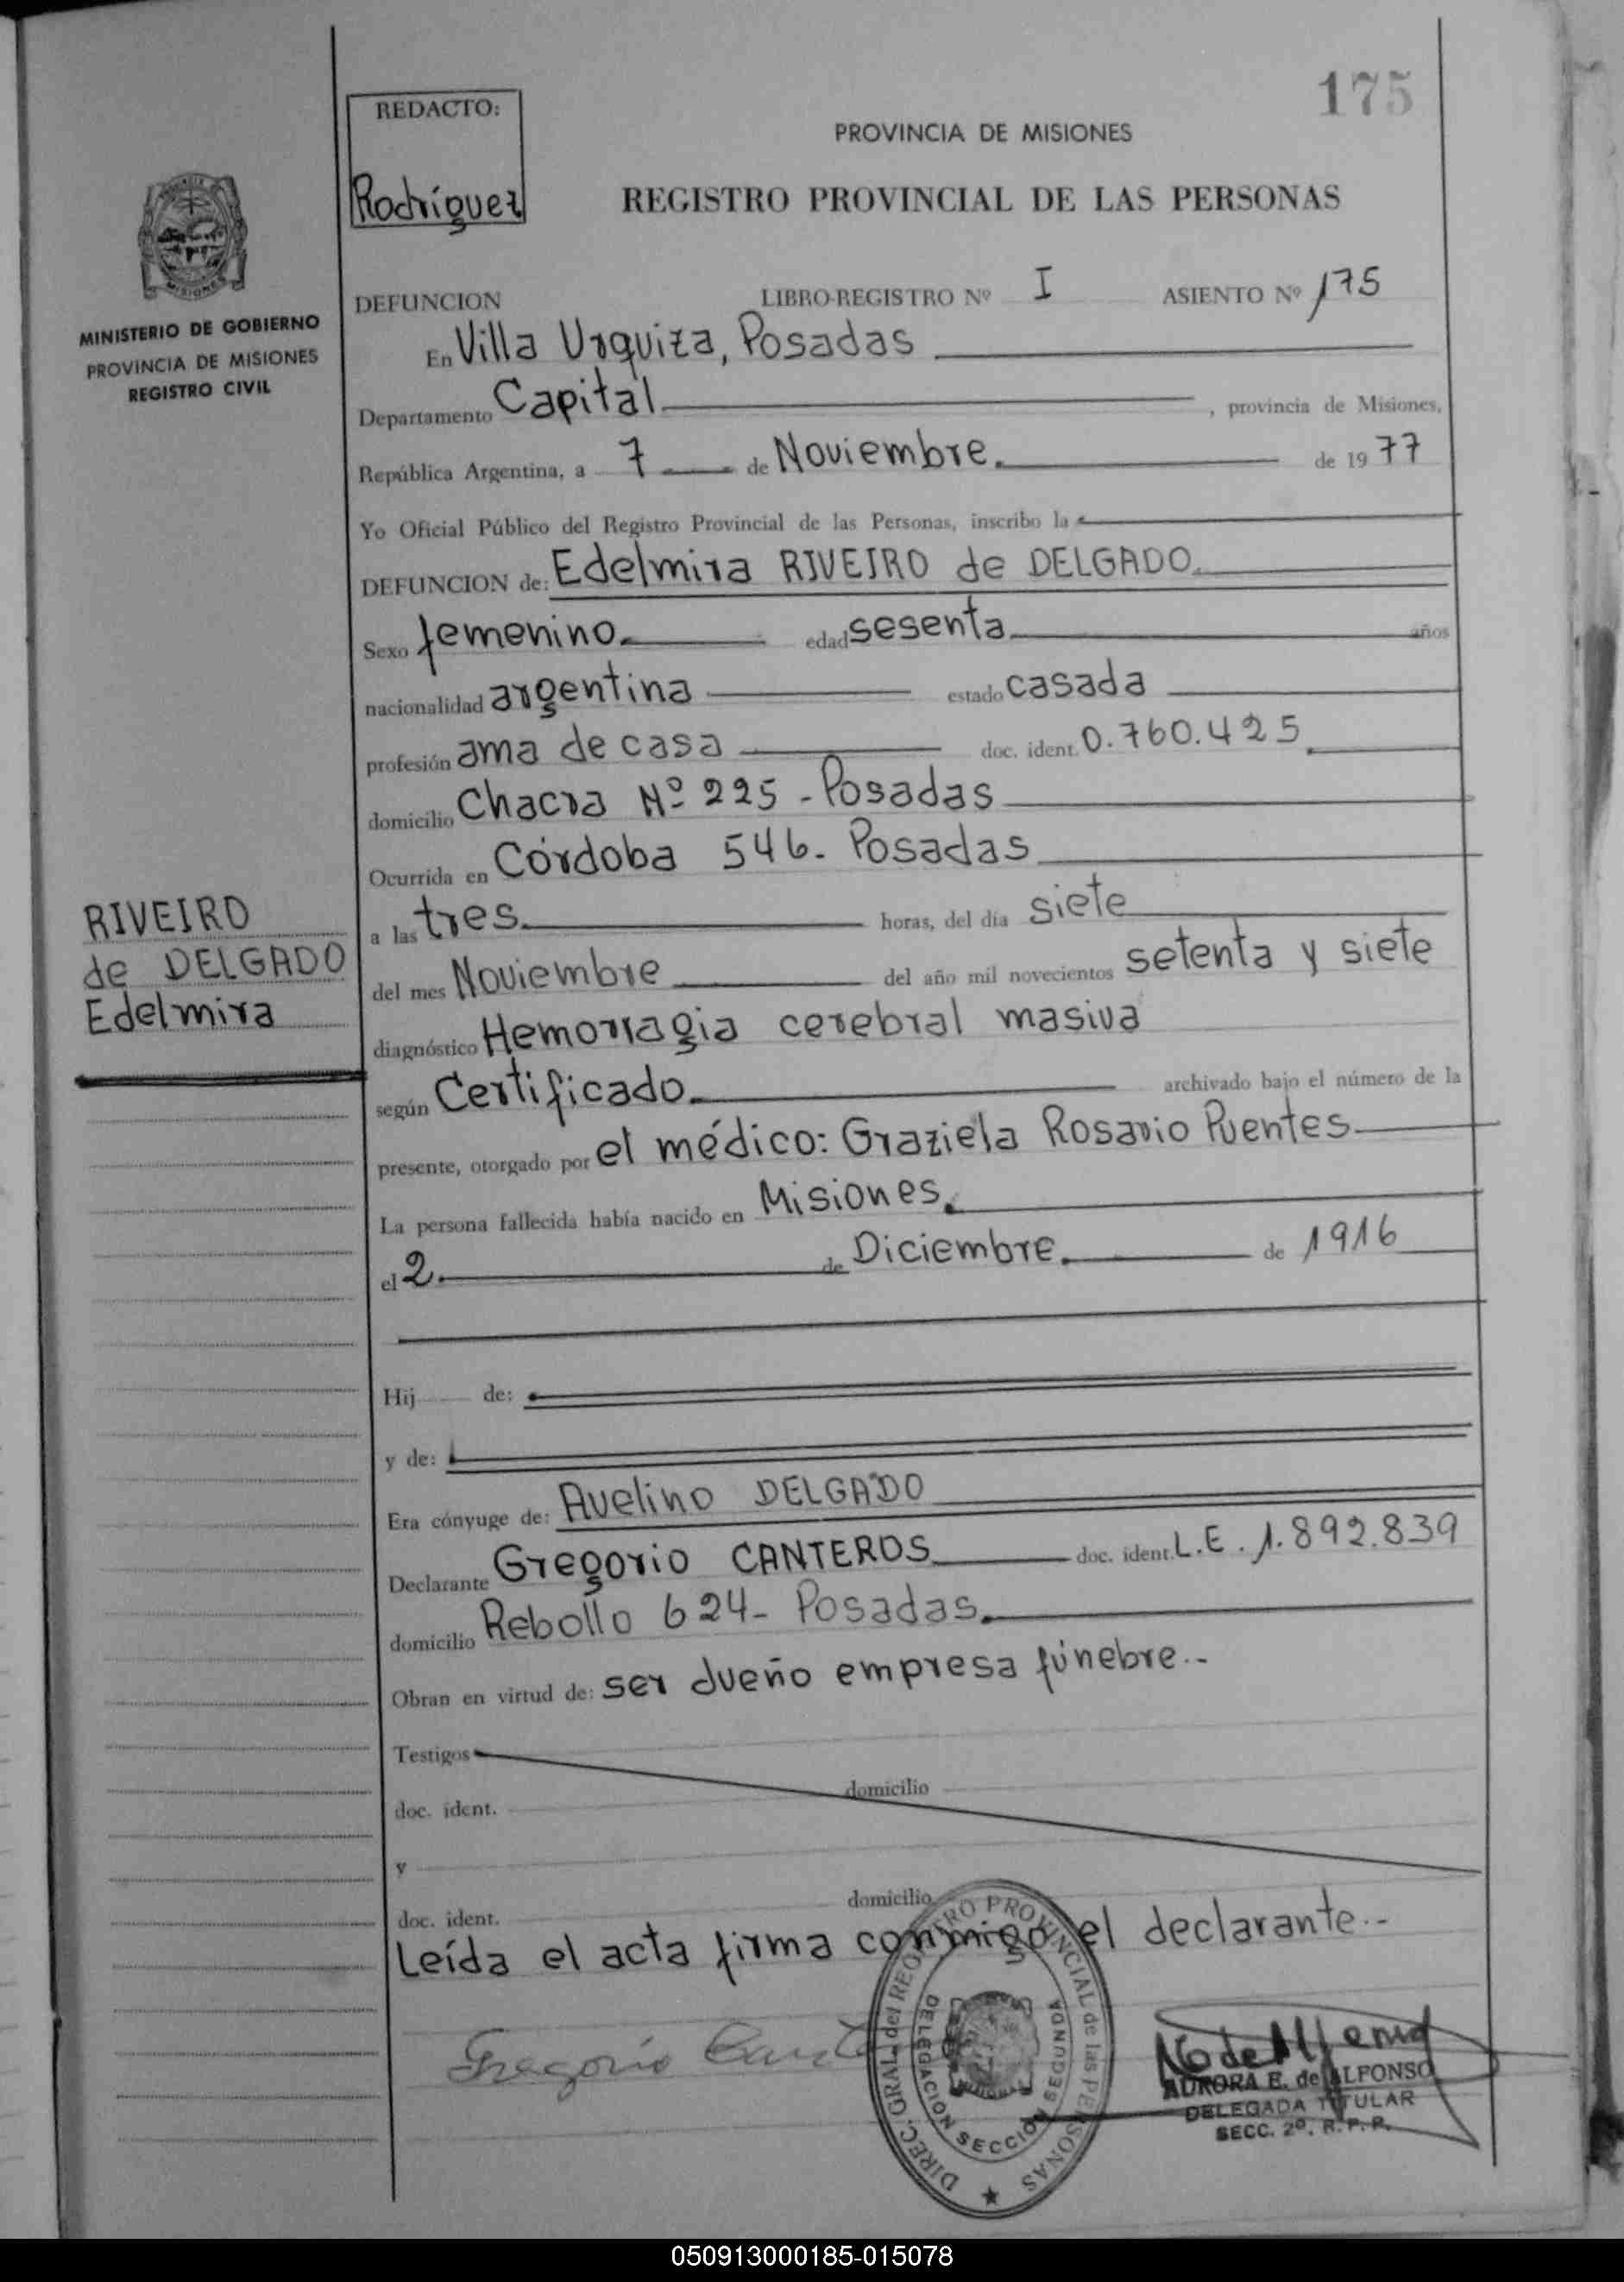 175
REDACTO:
Rodríguez
PROVINCIA DE MISIONES
REGISTRO PROVINCIAL DE LAS PERSONAS
MISIONES
MINISTERIO DE GOBIERNO
PROVINCIA DE MISIONES
REGISTRO CIVIL
DEFUNCION LIBRO-REGISTRO Nº I ASIENTO Nº 175
En Villa Urquiza, Posadas
Departamento Capital , provincia de Misiones,
República Argentina, a 7 de Noviembre. de 1977
Yo Oficial Público del Registro Provincial de las Personas, inscribo la
DEFUNCION de: Edelmira RIVEIRO de DELGADO
Sexo femenino. edad sesenta años
nacionalidad argentina estado casada
profesión ama de casa doc. ident. 0.760.425
domicilio Chacra Nº 225 - Posadas
Ocurrida en Córdoba 546. Posadas
RIVEIRO
de DELGADO
Edelmira
a las tres horas, del día siete
del mes Noviembre del año mil novecientos setenta y siete
diagnóstico Hemorragia cerebral masiva
según Certificado. archivado bajo el número de la
presente, otorgado por el médico: Graziela Rosario Puentes
La persona fallecida había nacido en Misiones.
el 2. de Diciembre. de 1916
Hij de:
y de:
Era cónyuge de: Avelino DELGADO
Declarante Gregorio CANTEROS doc. ident. L.E. 1.892.839
domicilio Rebollo 624- Posadas.
Obran en virtud de: ser dueño empresa fúnebre.-
Testigos
domicilio
doc. ident.
y
domicilio
doc. ident.
Leída el acta firma conmigo el declarante.-
Gregorio
DIREC. GRAL. del REGISTRO PROVINCIAL de las PERSONAS
DELEGACION SECCION SEGUNDA
AURORA E. de ALFONSO
DELEGADA TITULAR
SECC. 2º. R. P. P.
050913000185-015078